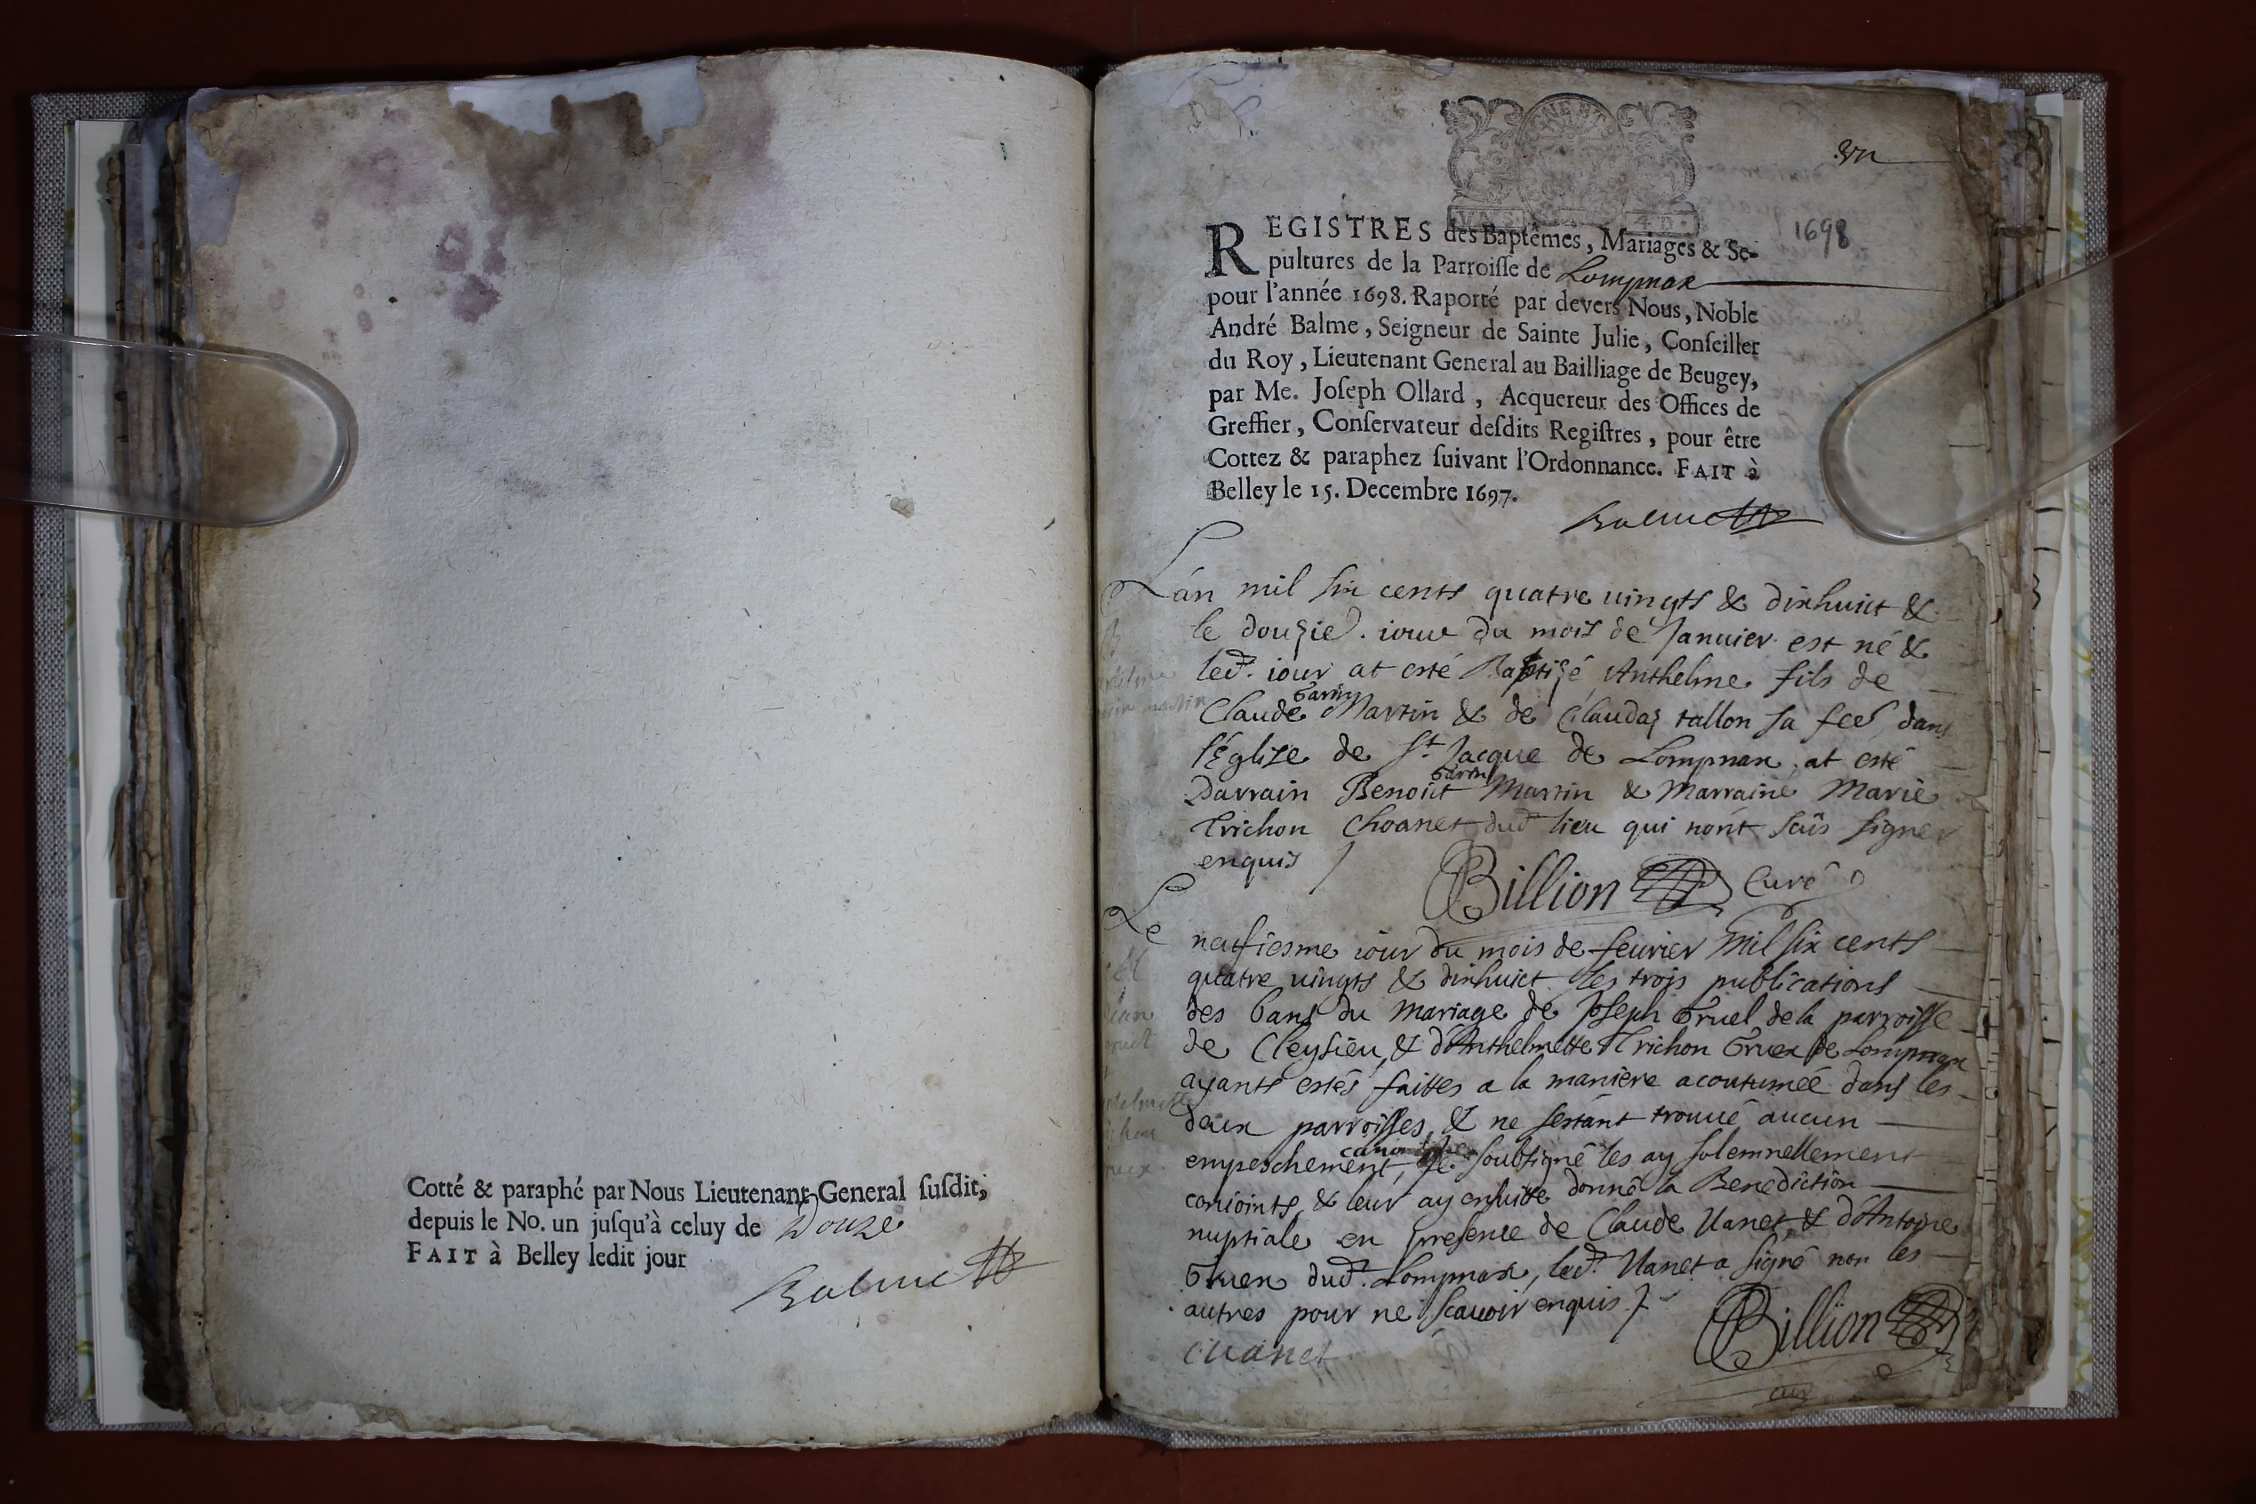 Cotté & paraphé par Nous Lieutenant General ſuſdit,
depuis le No. un juſqu'à celuy de Douze
FAIT à Belley ledit jour
Balme
un
1698
REGISTRES des Baptêmes, Mariages & Se-
pultures de la Parroiſſe de Lompnax
pour l'année 1698. Raporté par devers Nous, Noble
André Balme, Seigneur de Sainte Julie, Conſeiller
du Roy, Lieutenant General au Bailliage de Beugey,
par Me. Joſeph Ollard, Acquereur des Offices de
Greffier, Conſervateur deſdits Regiſtres, pour être
Cottez & paraphez ſuivant l'Ordonnance. FAIT à
Belley le 15. Decembre 1697.
Balme
Lán mil six cents quatre uingts & dixhuict &
le douzie. iour du mois de Januier est né &
led. iour at esté Baptizé Anthelme fils de
Claude Garin Martin & de Claudaz tallon sa fee, dans
l'Eglize de St Jacque de Lompnax, at esté
Parrain Benoict Garin Martin & Marraine Marie
Trichon Choanet dud lieu qui nont sçüs signer
enquis
Billion Curé
Le neufiesme iour du mois de feurier mil six cents
quatre uingts & dixhuict les trois publications
des bans du mariage de Joseph Gruel de la parroisse
de Cleysieu, & d'Anthelmette Trichon Gruex de Lompnax
ayants estés faittes a la maniere acoutumée dans les
deux parroisses, & ne sestant trouué aucun
empeschement, Je soubsigné les ay solemnellement
conioints, & leur ay ensuitte donné la Benediction
nuptiale en presence de Claude Uanet, & d'Antoine
Gruex dud. Lompnax, led. Uanet a signé non les
autres pour ne scauoir enquis
C Uanet
Billion